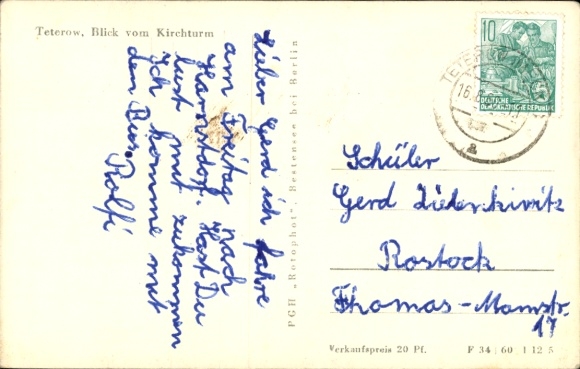 Teterow, Blick vom Kirchturm
Lieber Gerd ich fahre
am Freitag nach
Hast Du
lust mit zukommen
Ich komme mit
dem Bus.
Rolfi
PGH „Rotophot", Bestensee bei Berlin
10
DEUTSCHE
DEMOKRATISCHE REPUBLIK
TETEROW
16.
a
Schüler
Gerd
Rostock
Thomas-Mannstr.
17
Verkaufspreis 20 Pf.
F 34 60 1 12 5